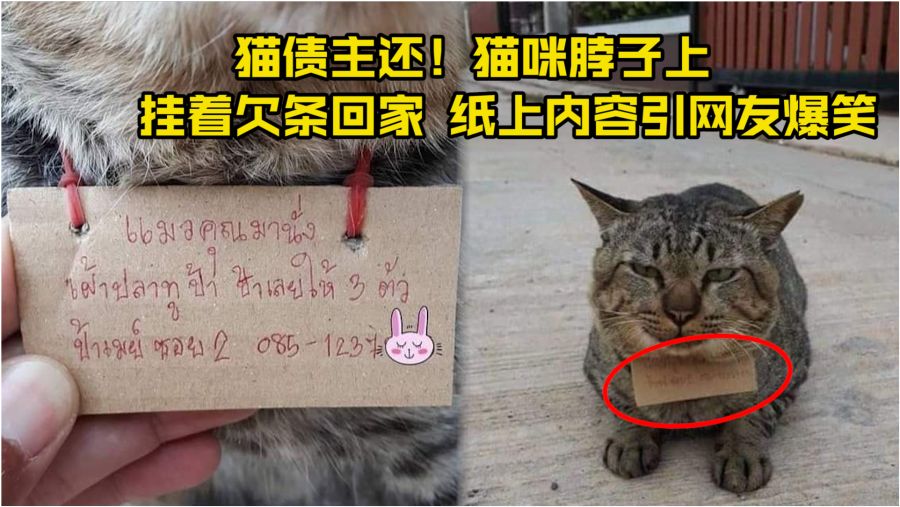 猫债主还！猫咪脖子上
挂着欠条回家 纸上内容引网友爆笑
แมวคุณมานั่ง
เฝ้าปลาทูป้า ป้าเลยให้ 3 ตัว
ป้าเมย์ ซอย 2 085-1237